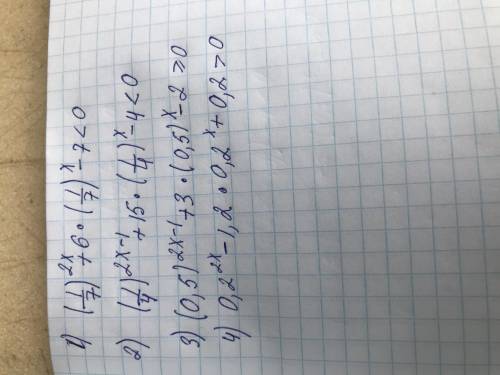 1) (1/7)^2x + 6 • (1/7)^x - 7 < 0
2) (1/4)^2x-1 + 15 • (1/4)^x - 4 < 0
3) (0,5)^2x-1 + 3 • (0,5)^x - 2 ⩾ 0
4) 0,2^2x - 1,2 • 0,2^x + 0,2 > 0